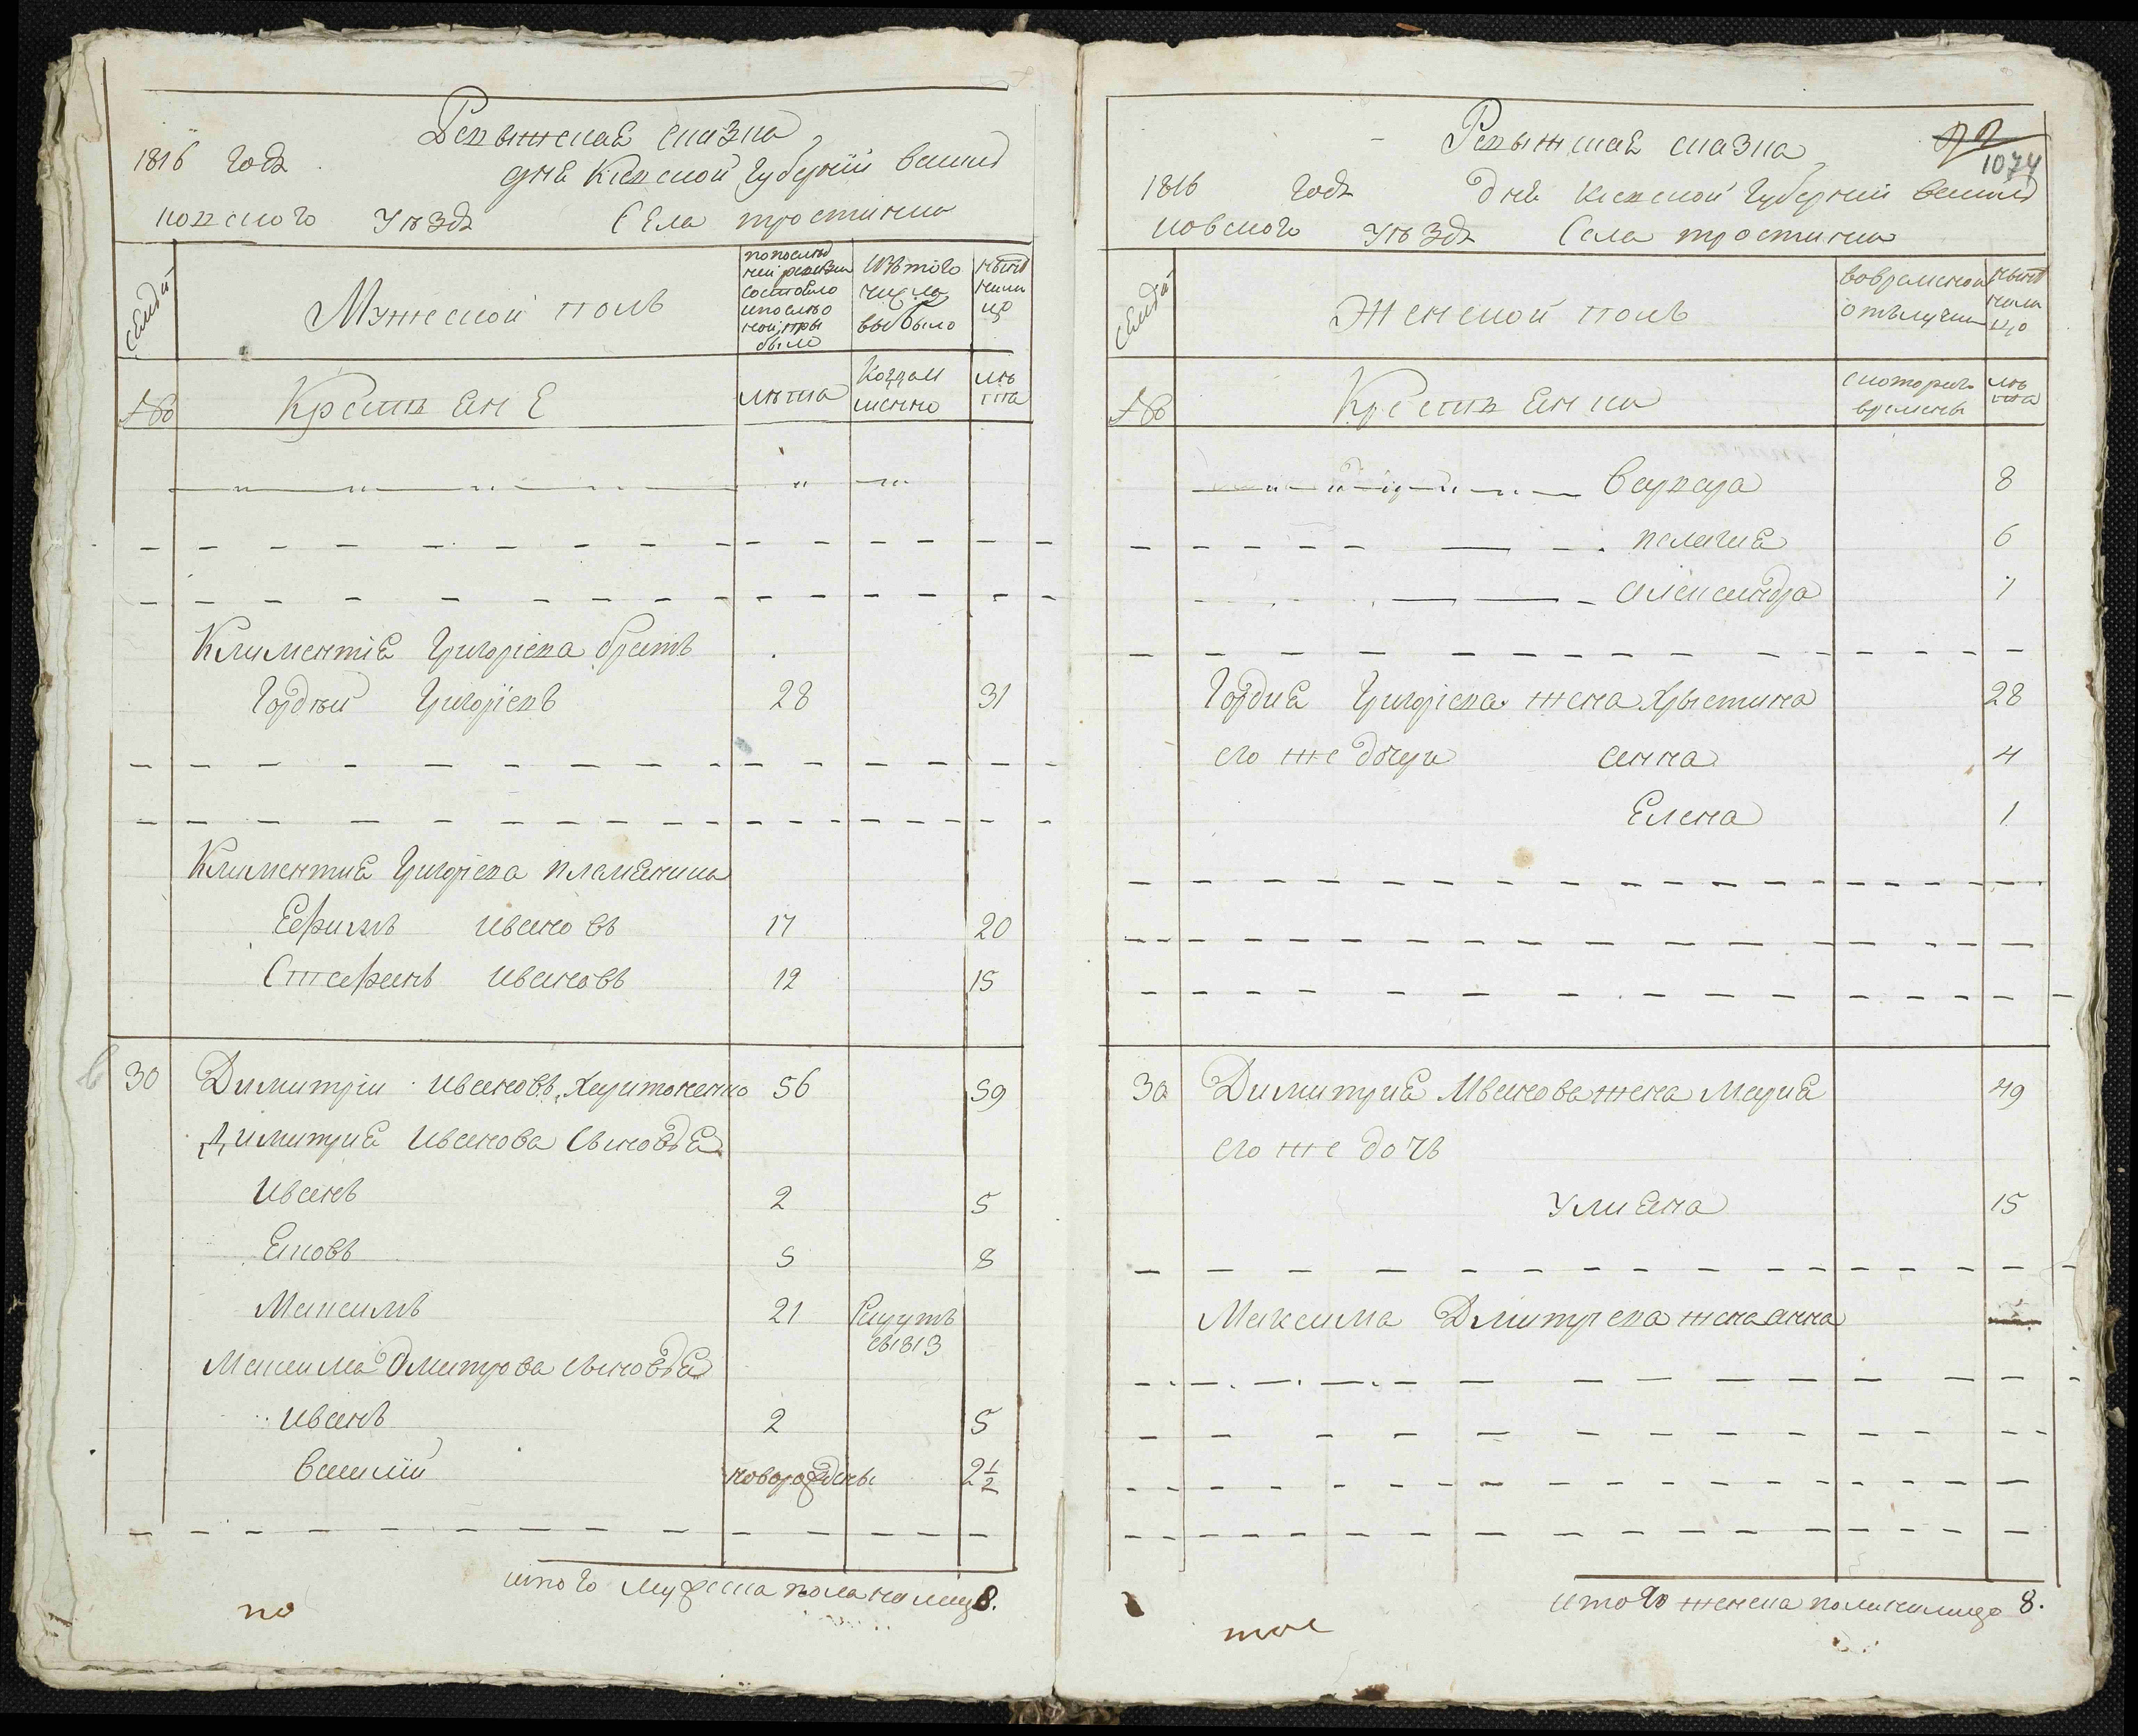 Ревыжская сказка
1816 года
дня Киевской губернїи васил
ковского уезда Села тростинки
семьи
Мужеской полъ
по последней ревизии состояло и после оной прибыло
изъ того числа выбыло
ныне на лицо
№
Крестьяне
лета
Когда именно
лета
Климентїя Григорїева братъ
Гордѣй Григорїевъ 28 31
Климентия Григорїева племяники
Ефимъ ивановъ 17 20
Стефанъ ивановъ 12 15
30 Димитрїи ивановъ Харитоненко 56 59
Димитрия иванова сыновья
иванъ 2 5
Яковъ 5 8
Максимъ 21 Рекрутъ
въ 1813
Максима Дмитрова сыновья
иванъ 2 5
василїй новорожденны 2½
итого мужеска пола на лицо 8.
по
Ревыжская сказка
92
1074
1816 года дня Киевской губернїи васил
ковского уезда Села тростинки
семьи
Женской полъ
во временной отълучки
ныне на лицо
№
Крестьянки
с которого времены
лета
варвара 8
пелагия 6
александра 1
Гордия Григорїева жена Хрыстина 28
его же дочери анна 4
Елена 1
30 Димитрия Иванова жена Мария 49
его же дочъ
Улияна 15
Максима Дмитрева жена анна
итого женска пола на лицо 8.
тое